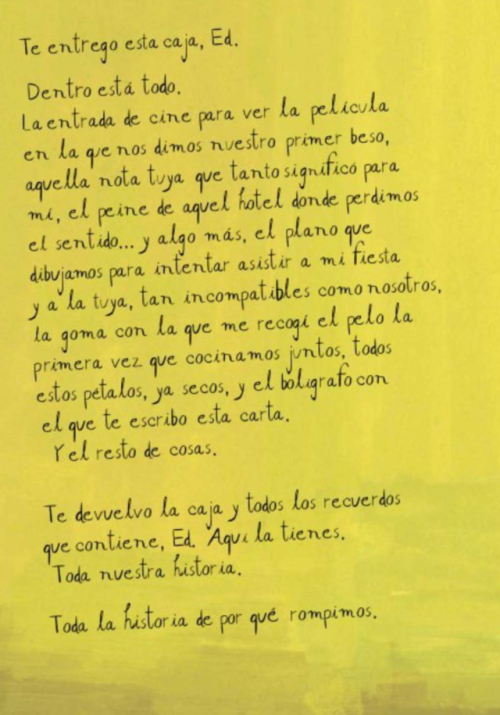 Te entrego esta caja, Ed.
Dentro está todo.
La entrada de cine para ver la película
en la que nos dimos nuestro primer beso,
aquella nota tuya que tanto significó para
mí, el peine de aquel hotel donde perdimos
el sentido... y algo más, el plano que
dibujamos para intentar asistir a mi fiesta
y a la tuya, tan incompatibles como nosotros,
la goma con la que me recogí el pelo la
primera vez que cocinamos juntos, todos
estos pétalos, ya secos, y el bolígrafo con
el que te escribo esta carta.
Y el resto de cosas.
Te devuelvo la caja y todos los recuerdos
que contiene, Ed. Aquí la tienes.
Toda nuestra historia.
Toda la historia de por qué rompimos.